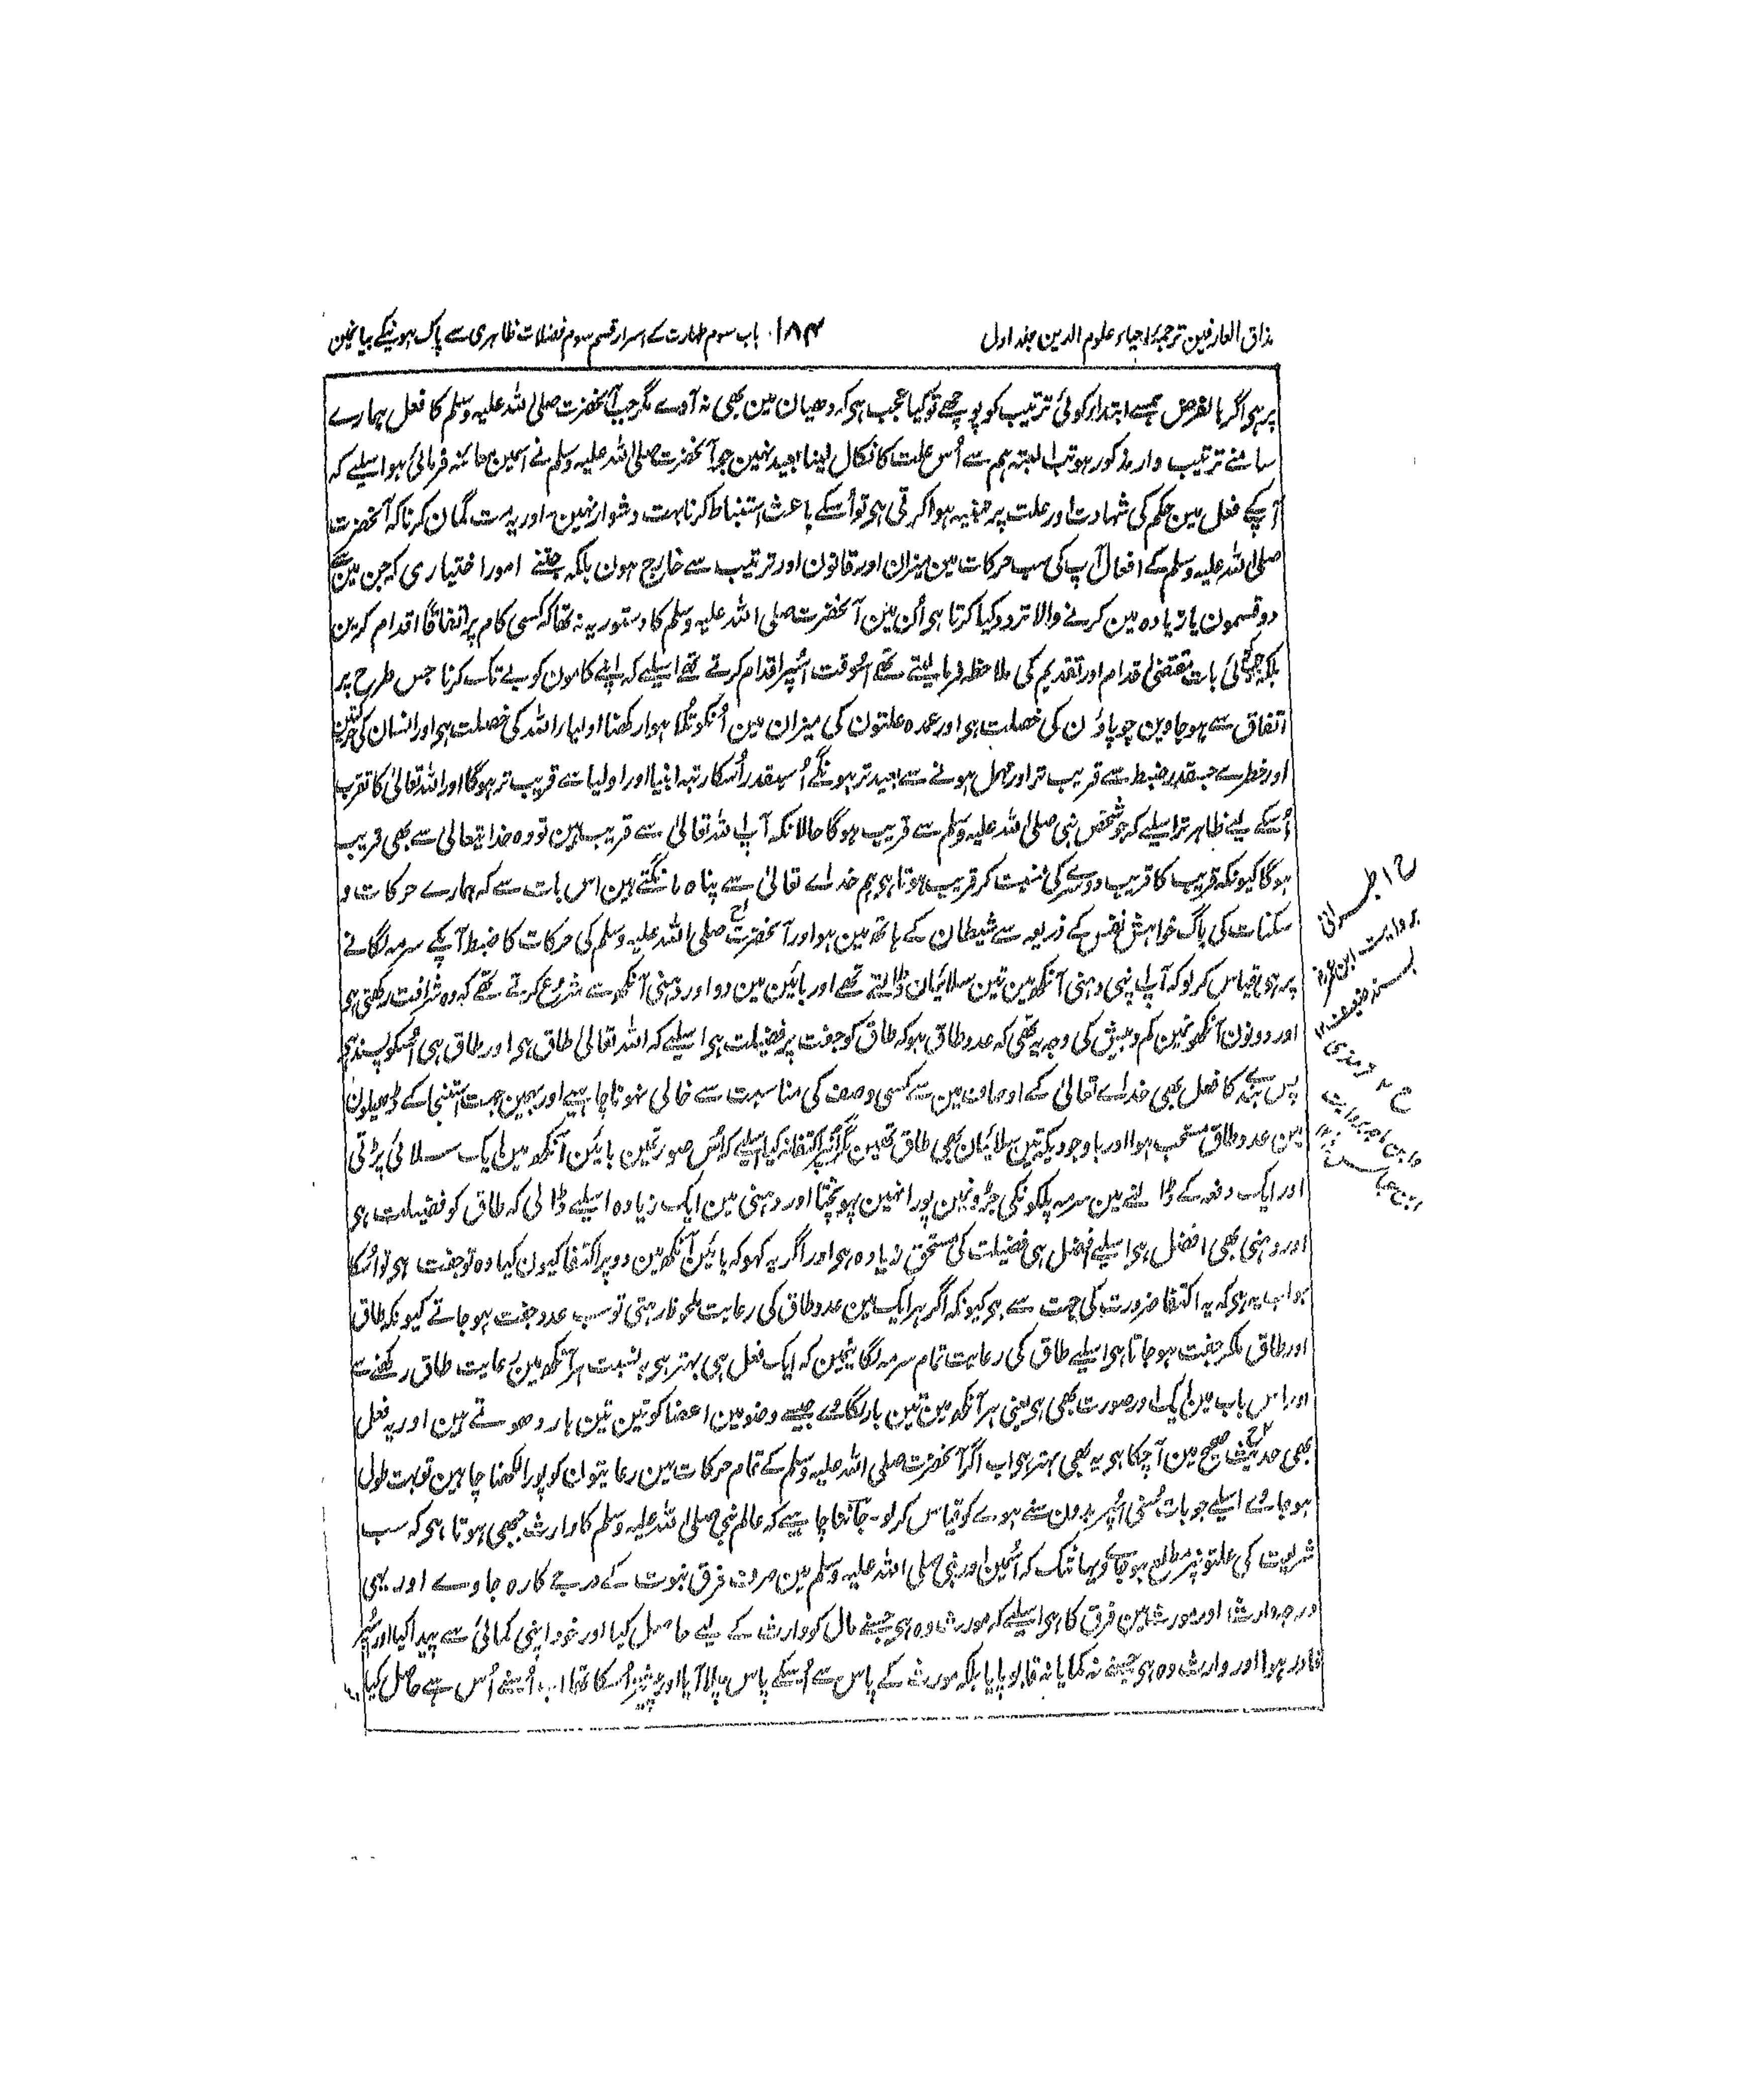 مذاق العارفین ترجمۂ احیاء علوم الدین جلد اول
۱۸۴
باب سوم طہارت کے اسرار قسم سوم فضلات ظاہری سے پاک ہونیکے بیانمین
پر ہی اگر بالفرض ہمسے ابتداء کوئی ترتیب کو پوچھے تو کیا عجب ہی کہ دھیان مین بھی نہ آوے مگر جب آنحضرت صلی اللہ علیہ وسلم کا فعل ہمارے
سامنے ترتیب وار مذکور ہو تب البتہ ہم سے اُس علت کا نکال لینا بعید نہین جو آنحضرت صلی اللہ علیہ وسلم نے اسمین معائنہ فرمائی ہو اسلیے کہ
آپکے فعل مین حکم کی شہادت اور علت پر تنبیہ ہوا کرتی ہی تو اُسکے باعث استنباط کرنا بہت دشوار نہین اور یہ مت گمان کرنا کہ آنحضرت
صلی اللہ علیہ وسلم کے افعال آپ کی سب حرکات مین میزان اور قانون اور ترتیب سے خارج ہون بلکہ جتنے امور اختیاری کہ جن مین سے
دو قسمون یا زیادہ مین کرنے والا تردد کیا کرتا ہی اُن مین آنحضرت صلی اللہ علیہ وسلم کا دستور یہ نہ تھا کہ کسی کام پر اتفاقاً اقدام کرین
بلکہ جب کوئی بات مقتضی اقدام اور تقدیم کی ملاحظہ فرما لیتے تھے اُسوقت اُسپر اقدام کرتے تھے اسلیے کہ اپنے کامون کو بے تک کرنا جس طرح پر
اتفاق سے ہو جاوین چوپاؤن کی خصلت ہی اور عمدہ علتون کی میزان مین اُنکو تُلا ہوا رکھنا اولیاء اللہ کی خصلت ہی اور انسان کی حرکتین
اور خطرے جسقدر ضبط سے قریب تر اور مہمل ہونے سے بعید تر ہونگے اُسیقدر اُسکا رتبہ انبیا اور اولیا سے قریب تر ہوگا اور اللہ تعالیٰ کا تقرب
اُسکے لیے ظاہر تر اسلیے کہ جو شخص نبی صلی اللہ علیہ وسلم سے قریب ہوگا حالانکہ آپ اللہ تعالیٰ سے قریب ہین تو وہ خدایتعالی سے بھی قریب
ہوگا کیونکہ قریب کا قریب دوسرے کی نسبت کر قریب ہوتا ہی ہم خداے تعالیٰ سے پناہ مانگتے ہین اس بات سے کہ ہمارے حرکات و
سکنات کی باگ خواہش نفس کے ذریعہ سے شیطان کے ہاتھ مین ہو اور آنحضرت صلی اللہ علیہ وسلم کی حرکات کا ضبط آپکے سرمہ لگانے
پر ہی قیاس کر لو کہ آپ اپنی دہنی آنکھ مین تین سلائیان ڈالتے تھے اور بائین مین دو اور دہنی آنکھ سے شروع کرتے تھے کہ وہ شرافت رکھتی ہی
اور دونون آنکھونمین کم و بیش کی وجہ یہ تھی کہ عدد طاق ہو کہ طاق کو جفت پر فضیلت ہی اسلیے کہ اللہ تعالیٰ طاق ہی اور طاق ہی اُسکو پسند ہی
پس بندے کا فعل بھی خداے تعالیٰ کے اوصاف مین سے کسی وصف کی مناسبت سے خالی نہونا چاہیے اور بہمین جہت استنجا کے ڈھیلون
مین عدد طاق مستحب ہوا اور باوجودیکہ تین سلائیان بھی طاق تھین مگر اُنپر اکتفا نہ کیا اسلیے کہ اُس صورتمین بائین آنکھ مین ایک سلائی پڑتی
اور ایک دفعہ کے ڈالنے مین سرمہ پلکونکی جڑونمین پورا نہین پہونچتا اور دہنی مین ایک زیادہ اسلیے ڈالی کہ طاق کو فضیلت ہی
اور دہنی بھی افضل ہی اسلیے افضل ہی فضیلت کی مستحق زیادہ ہی اور اگر یہ کہو کہ بائین آنکھ مین دو پر اکتفا کیون کیا وہ تو جفت ہی تو اُسکا
جواب یہ ہی کہ یہ اکتفا ضرورت کی جہت سے ہی کیونکہ اگر ہر ایک مین عدد طاق کی رعایت ملحوظ رہتی تو سب عدد جفت ہو جاتے کیونکہ طاق
اور طاق ملکر جفت ہو جاتا ہی اسلیے طاق کی رعایت تمام سرمہ لگانیمین کہ ایک فعل ہی بہتر ہی بہ نسبت ہر آنکھ مین رعایت طاق رکھنے سے
اور اس باب مین ایک اور صورت بھی ہی یعنی ہر آنکھ مین تین بار لگاوے جیسے وضو مین اعضا کو تین تین بار دھوتے ہین اور یہ فعل
بھی حدیث صحیح مین آچکا ہی یہ بھی بہتر ہی اب اگر آنحضرت صلی اللہ علیہ وسلم کے تمام حرکات مین رعایتون کو پورا لکھنا چاہین تو بہت طول
ہو جاوے اسلیے جو بات سُنی اُسپر بدون سنے ہوے کو قیاس کر لو۔ جاننا چاہیے کہ عالم نبی صلی اللہ علیہ وسلم کا وارث جبھی ہوتا ہی کہ سب
شریعت کی علتونپر مطلع ہو جاوے یہانتک کہ اُسمین اور نبی صلی اللہ علیہ وسلم مین صرف فرق نبوت کے درجے کا رہ جاوے اور یہی
درجہ وارث اور مورث مین فرق کا ہی اسلیے کہ مورث وہ ہی جسنے مال کو وارث کے لیے حاصل کیا اور خود اپنی کمائی سے پیدا کیا اور اُسپر
قادر ہوا اور وارث وہ ہی جسنے نہ کمایا نہ قابو پایا بلکہ مورث کے پاس سے اُسکے پاس چلا آیا اور پیشتر اُسکا تھا اب اُسنے اُس سے حاصل کیا
ح ا طبرانی
بروایت ابن عمر
بسند ضعیف ۱۲
ح ۲ ترمذی
وابن ماجہ بروایت
ابن عباس